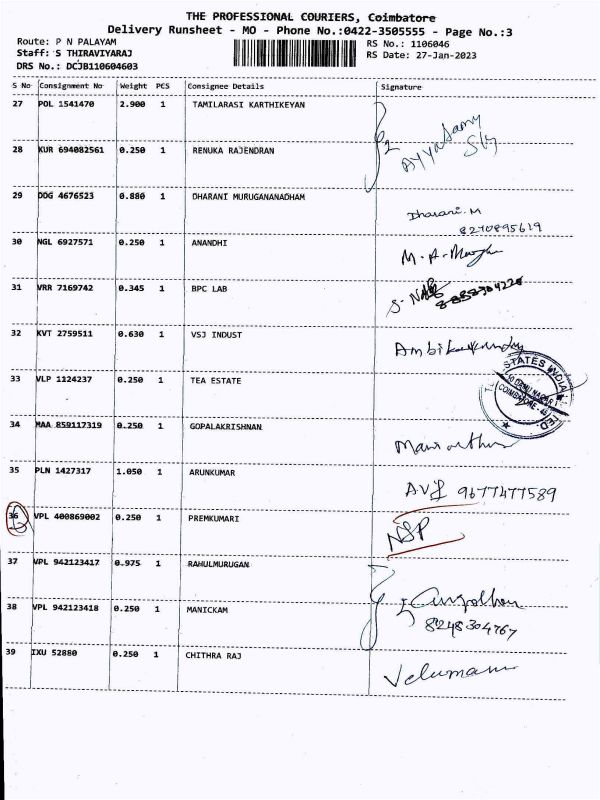 THE PROFESSIONAL COURIERS, Coimbatore
Delivery Runsheet - MO - Phone No.:0422-3505555 - Page No.:3
Route: P N PALAYAM
RS No.: 1106046
Staff: S THIRAVIYARAJ
RS Date: 27-Jan-2023
DRS No.: DCJB110604603
S No Consignment No Weight PCS Consignee Details Signature
27 POL 1541470 2.900 1 TAMILARASI KARTHIKEYAN
Ayyasamy
28 KUR 694082561 0.250 1 RENUKA RAJENDRAN
29 DDG 4676523 0.880 1 DHARANI MURUGANANADHAM
Dharani.M
8270895619
30 NGL 6927571 0.250 1 ANANDHI
31 VRR 7169742 0.345 1 BPC LAB
32 KVT 2759511 0.630 1 VSJ INDUST
33 VLP 1124237 0.250 1 TEA ESTATE
STATES INDIA
COIMBATORE
34 MAA 859117319 0.250 1 GOPALAKRISHNAN
35 PLN 1427317 1.050 1 ARUNKUMAR
9677477589
36 VPL 400869002 0.250 1 PREMKUMARI NSP
37 VPL 942123417 0.975 1 RAHULMURUGAN
38 VPL 942123418 0.250 1 MANICKAM
8248304767
39 IXU 52880 0.250 1 CHITHRA RAJ
Velumani